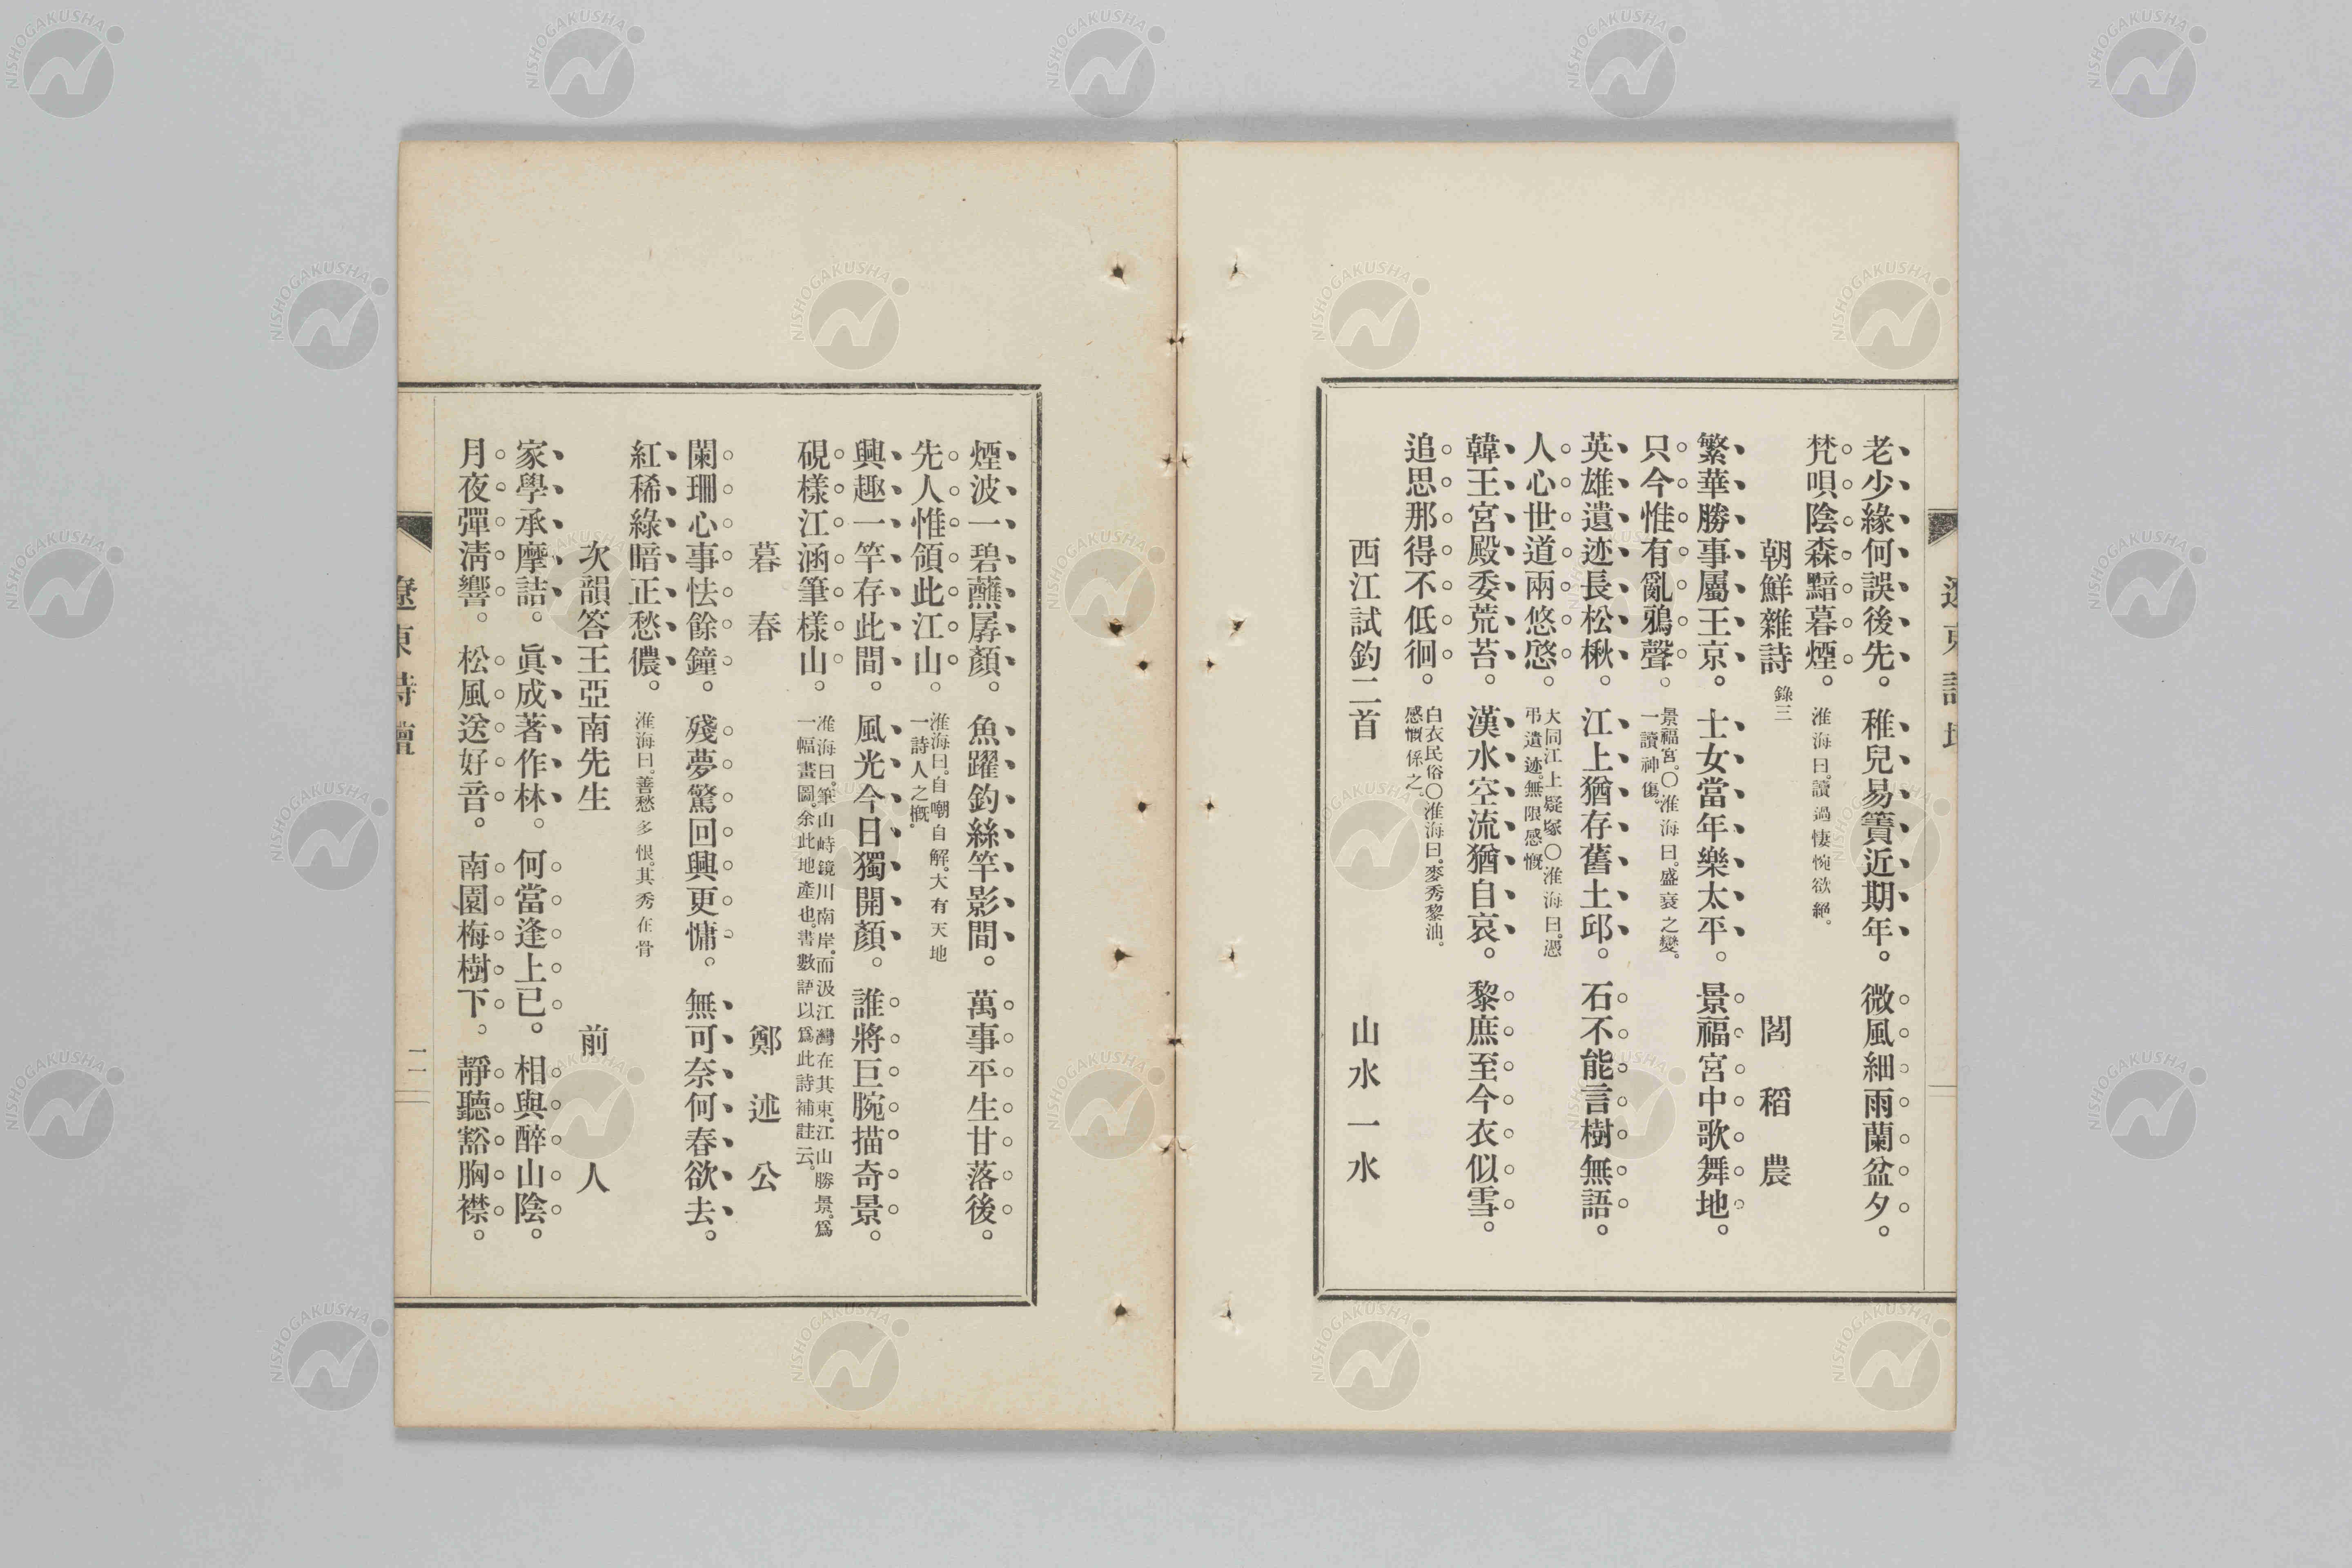 老少緣何誤後先。稚兒易簀近期年。微風細雨蘭盆夕。
梵唄陰森黯暮煙。淮海曰。讀過悽惋欲絕。
朝鮮雜詩 錄三 閻稻農
繁華勝事屬王京。士女當年樂太平。景福宮中歌舞地。
只今惟有亂鴉聲。景福宮。〇淮海曰。盛衰之變。一讀神傷。
英雄遺迹長松楸。江上猶存舊土邱。石不能言樹無語。
人心世道兩悠悠。大同江上疑塚〇淮海曰。憑弔遺迹。無限感慨
韓王宮殿委荒苔。漢水空流猶自哀。黎庶至今衣似雪。
追思那得不低徊。白衣民俗〇淮海曰。麥秀黎油。感慨係之。
西江試釣二首 山水一水
煙波一碧蘸孱顏。魚躍釣絲竿影間。萬事平生甘落後。
先人惟領此江山。淮海曰。自嘲自解。大有天地一詩人之慨。
興趣一竿存此間。風光今日獨開顏。誰將巨腕描奇景。
硯樣江涵筆樣山。淮海曰。筆山峙鏡川南岸。而汲江灣在其東。江山勝景。爲一幅畫圖。余此地產也。書數語以爲此詩補註云。
暮春 鄭述公
闌珊心事怯餘鐘。殘夢驚回興更慵。無可奈何春欲去。
紅稀綠暗正愁儂。淮海曰。善愁多恨。其秀在骨
次韻答王亞南先生 前人
家學承摩詰。眞成著作林。何當逢上已。相與醉山陰。
月夜彈淸響。松風送好音。南園梅樹下。靜聽豁胸襟。
遼東詩壇
二一
NISHOGAKUSHA